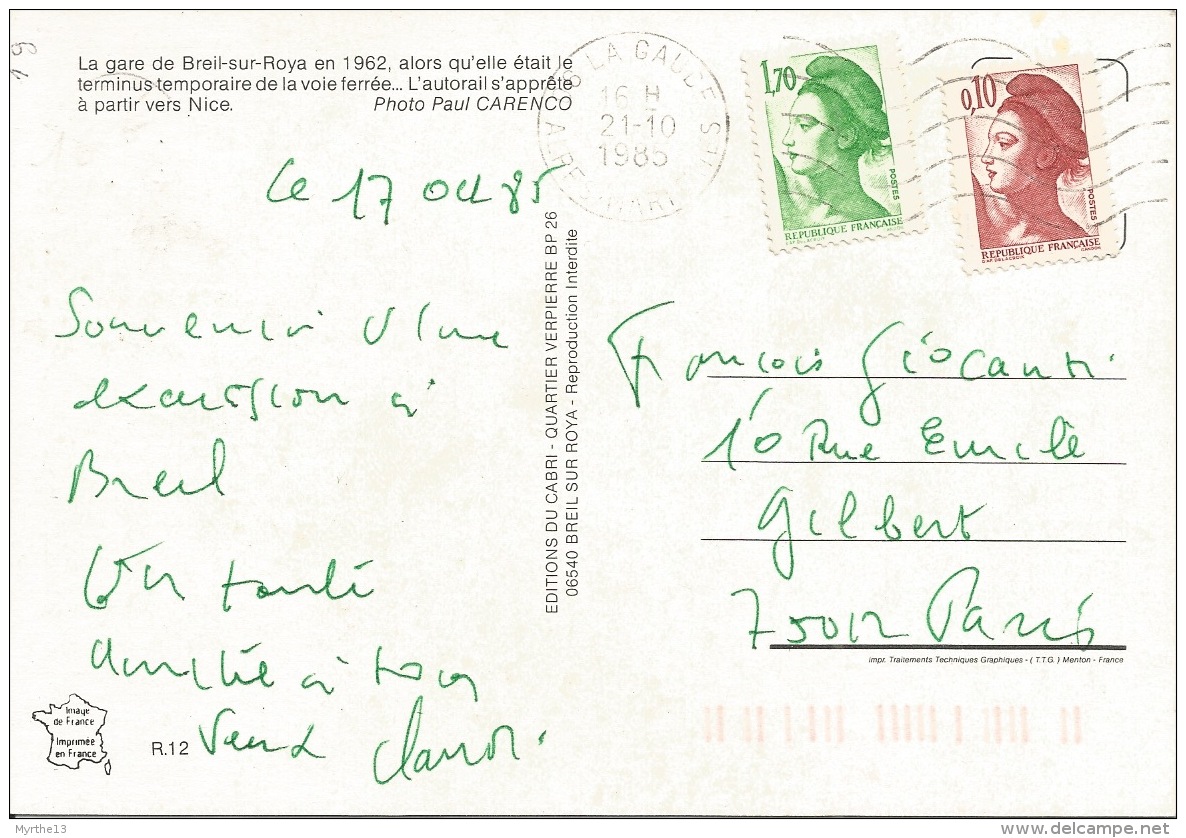 La gare de Breil-sur-Roya en 1962, alors qu'elle était le
terminus temporaire de la voie ferrée... L'autorail s'apprête
à partir vers Nice. Photo Paul CARENCO
LA GAUDE
16 H
21-10
1985
1,70
POSTES
REPUBLIQUE FRANÇAISE
0,10
POSTES
REPUBLIQUE FRANÇAISE
Le 17 Oct 85
Souvenir d'une
excursion à
Breil
En toute
amitié à tous
EDITIONS DU CABRI - QUARTIER VERPIERRE BP 26
06540 BREIL SUR ROYA - Reproduction Interdite
François Giocanti
10 Rue Emile
Gilbert
75012 Paris
impr. Traitements Techniques Graphiques - ( T.T.G. ) Menton - France
Image
de France
Imprimée
en France
R.12
Myrthe13
delcampe.net